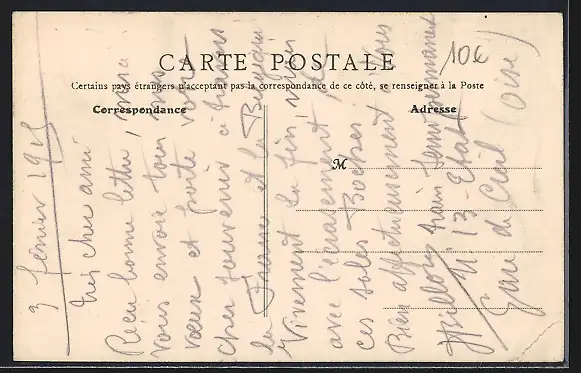 CARTE POSTALE
Certains pays étrangers n'acceptant pas la correspondance de ce côté, se renseigner à la Poste
Correspondance
Adresse
M
10€
3 février 1915
très cher ami
Reçu bonne lettre, merci
vous envoie tous nos
vœux et forte
cher souvenir à travers
la France et la Belgique
Vivement la fin,
avec l'écrasement de
ces sales Boches
Bien affectueusement à vous
train semi permanent
N. 13 - Etat
Gare de Creil (Oise)